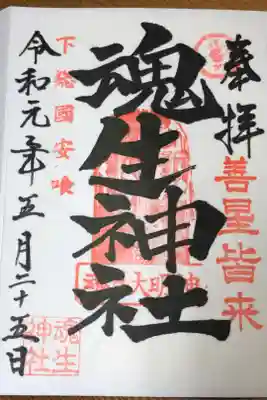 奉拝
善星皆来
魂生神社
下総國安喰
令和元年五月二十五日
魂生
神社